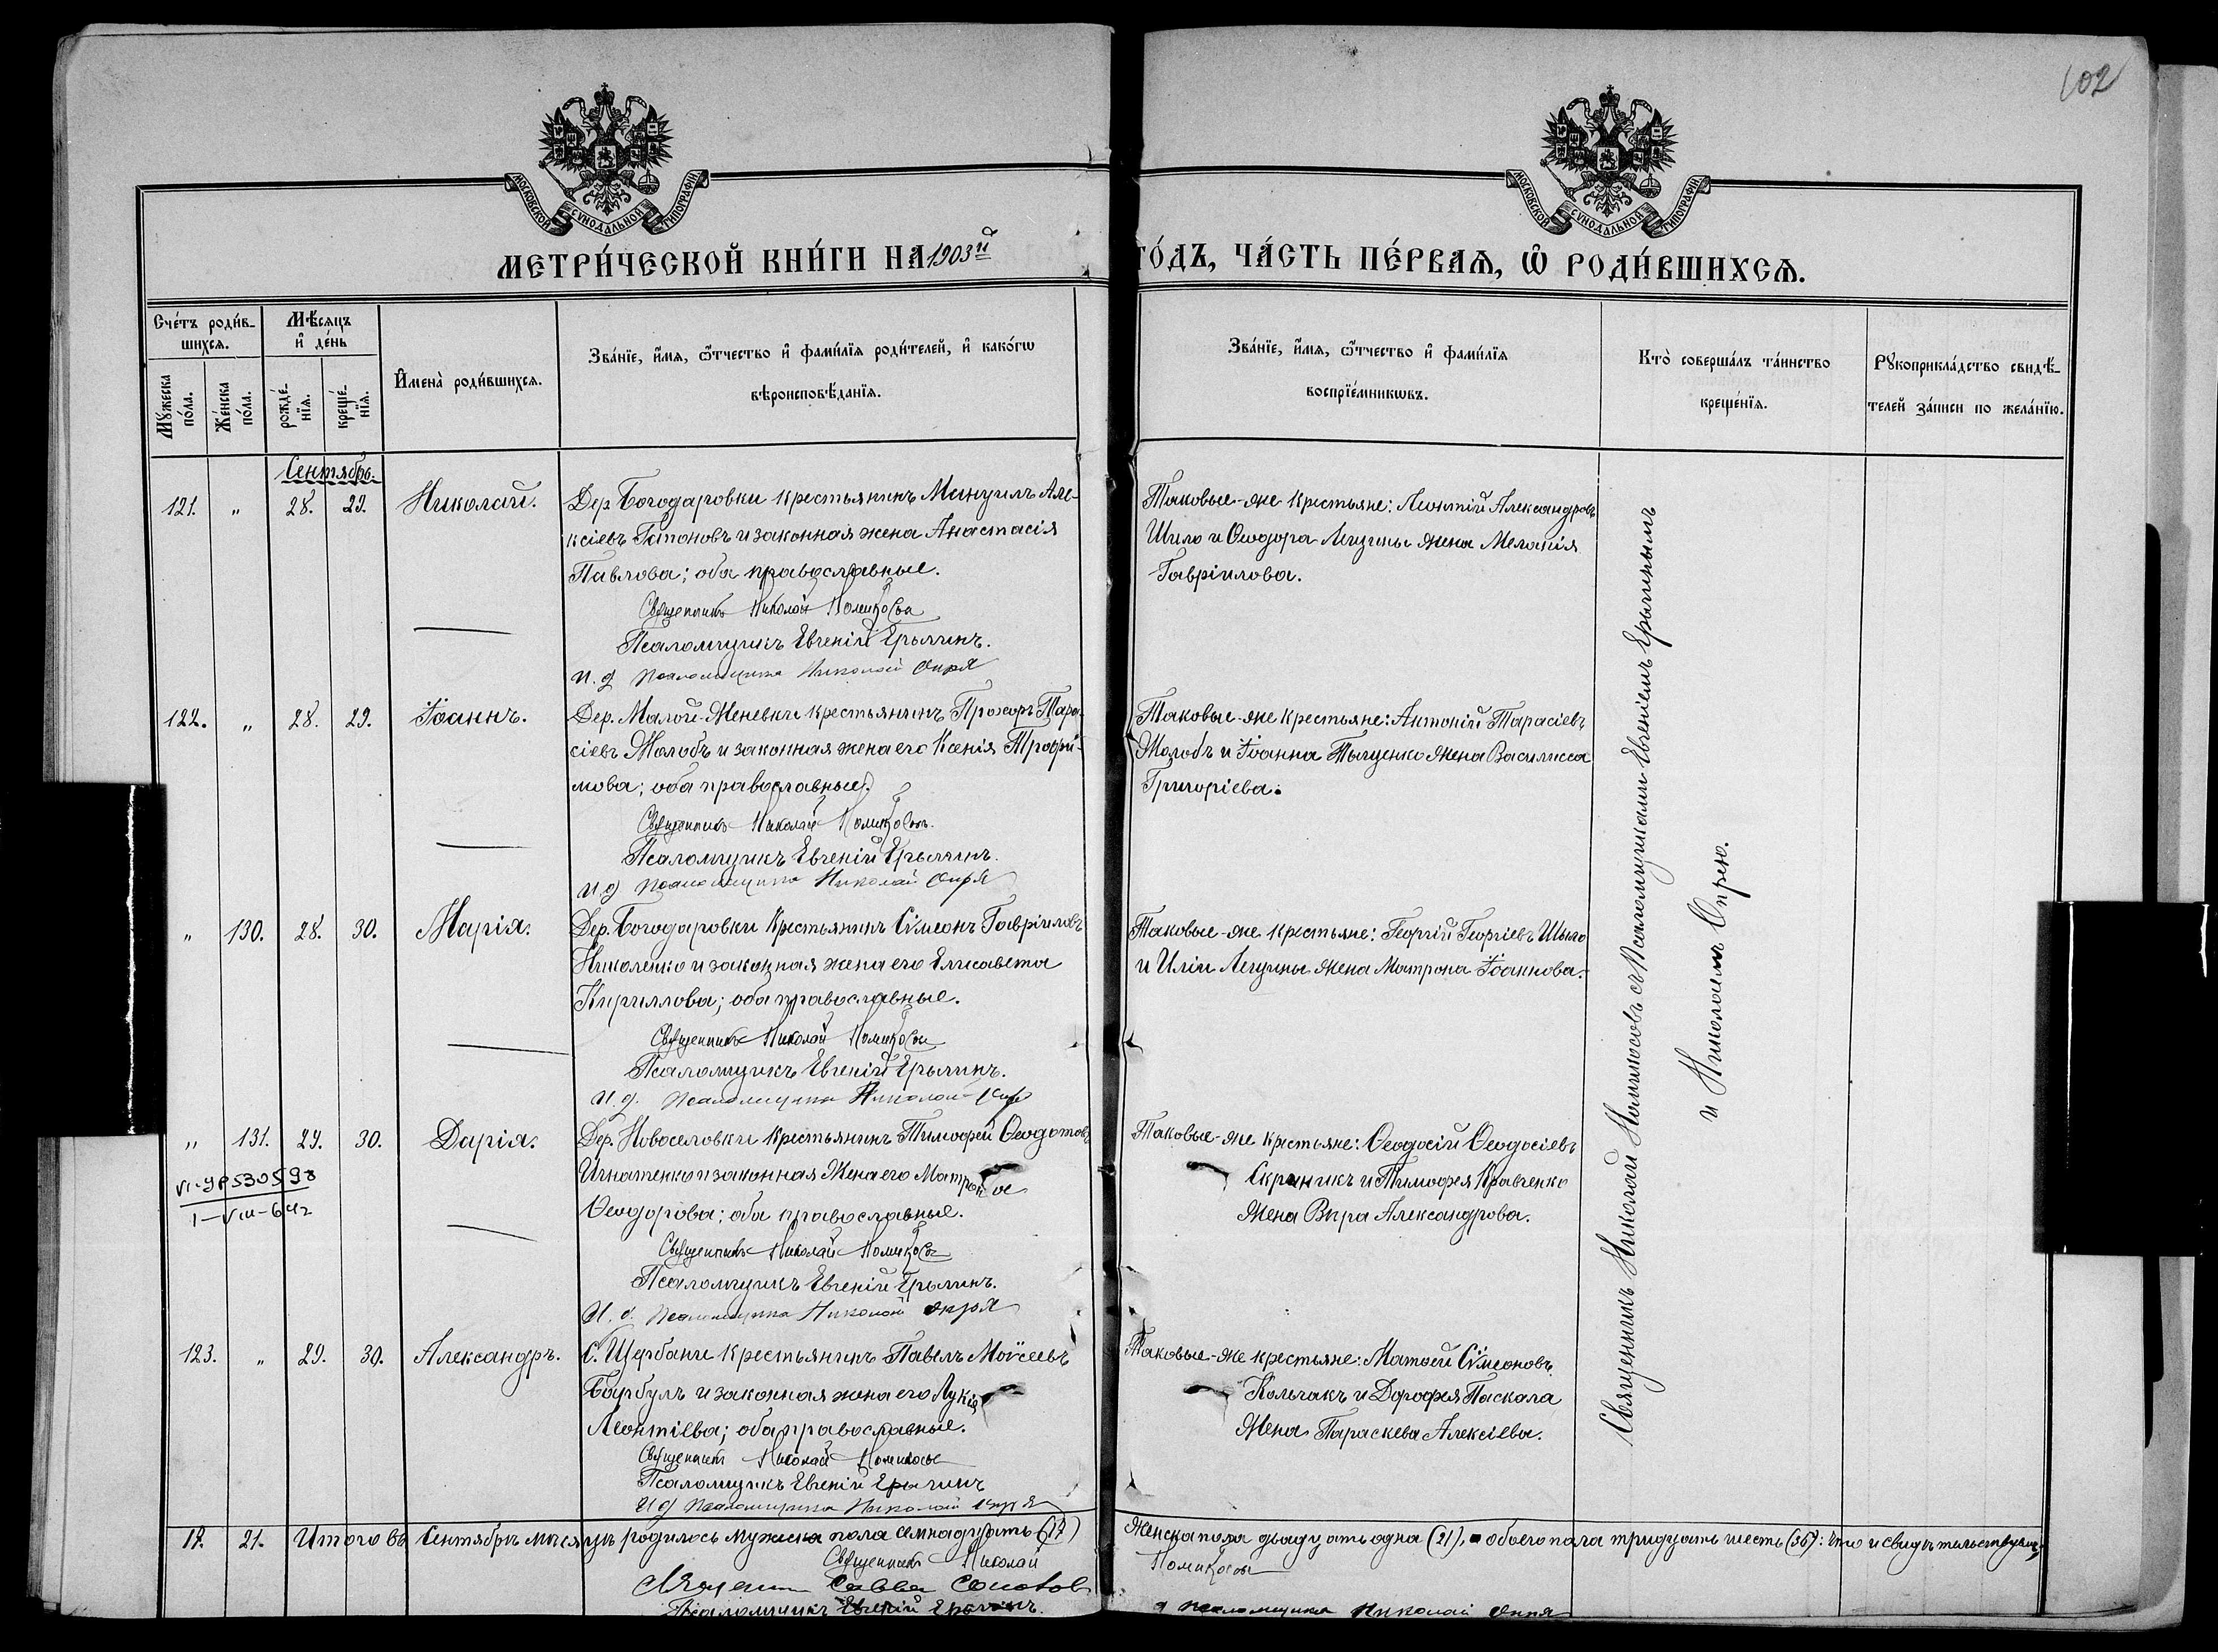 102
МОСКОВСКОЙ СѴНОДАЛЬНОЙ ТИПОГРАФІИ
МОСКОВСКОЙ СѴНОДАЛЬНОЙ ТИПОГРАФІИ
МЕТРИ́ЧЕСКОЙ КНИ́ГИ НА 1903й
ГО́ДЪ, ЧА́СТЬ ПЕ́РВАѦ, Ѡ РОДИ́ВШИХСѦ.
Сче́тъ роди́в-
шихсѧ.
Мѣ́сѧцъ
и҆ де́нь
Мꙋ́жеска
по́ла.
Же́нска
по́ла.
рожде́-
нїѧ.
креще́-
нїѧ.
И҆мена̀ роди́вшихсѧ.
Зва́нїе, и҆́мѧ, ѻ҆́тчество и҆ фамѝлїѧ роди́телей, и҆ како́гѡ
вѣроисповѣ́данїѧ.
Зва́нїе, и҆́мѧ, ѻ҆́тчество и҆ фамѝлїѧ
воспрїе́мникѡвъ.
Кто̀ соверша́лъ та́инство
креще́нїѧ.
Рꙋкоприкла́дство свидѣ́-
телей за́писи по жела́нїю.
Сентябрь.
121. " 28. 29. Николай.
Дер. Богодаровки крестьянинъ Мануилъ Але-
ксіевъ Гапоновъ и законная жена Анастасія
Павлова; оба православные.
Священникъ Николай
Псаломщикъ Евгеній Ерыгинъ.
И. д. псаломщика Николай Опря
Таковые-же крестьяне: Леонтій Александровъ
Шило и Ѳеодора Легуны жена Меланія
Гавріилова.
122. " 28. 29. Іоаннъ.
Дер. Малой-Меневки крестьянинъ Прохоръ Тара-
сіевъ Жолобъ и законная жена его Ксенія Трофи-
мова; оба православные.
Священникъ Николай
Псаломщикъ Евгеній Ерыгинъ.
И.д. псаломщика Николай Опря
Таковые-же крестьяне: Антоній Тарасіевъ
Жолобъ и Іоанна Тыщенко жена Василисса
Григоріева.
" 130. 28. 30. Марія.
Дер. Богодаровки крестьянинъ Сѵмеонъ Гавріиловъ
Николенко и законная жена его Елисавета
Кириллова; оба православные.
Священникъ Николай
Псаломщикъ Евгеній Ерыгинъ.
И.д. псаломщика Николай Опря
Таковые-же крестьяне: Георгій Георгіевъ Шило
и Иліи Легуны жена Матрона Іоаннова.
" 131. 29. 30. Дарія.
Дер. Новоселовки крестьянинъ Тимофей Ѳеодотовъ
Игнатенко и законная жена его Матрона
Ѳеодорова; оба православные.
Священникъ Николай
Псаломщикъ Евгеній Ерыгинъ.
И. д. псаломщика Николай Опря
Таковые-же крестьяне: Ѳеодосій Ѳеодосіевъ
Скрыникъ и Тимофея Кравченко
жена Вѣра Александрова.
123. " 29. 30. Александръ.
С. Щербани крестьянинъ Павелъ Моѵсеевъ
и законная жена его Лукія
Леонтіева; оба православные.
Священникъ Николай
Псаломщикъ Евгеній Ерыгинъ
И д псаломщика Николай Опря
Таковые-же крестьяне: Матѳей Сѵмеоновъ
Кольчакъ и Дорофея Паскала
жена Параскева Алексіева.
Священникъ Николай съ Псаломщиками Евгеніемъ Ерыгинымъ
и Николаемъ Опрею.
17. 21. Итого въ Сентябрѣ мѣсяцѣ родилось мужеска пола семнадцать (17)
женска пола двадцать одна (21), обоего пола тридцать шесть (36): что и свидѣтельствуемъ
Священникъ Николай
Савва
Псаломщикъ Евгеній Ерыгинъ.
псаломщика Николай Опря